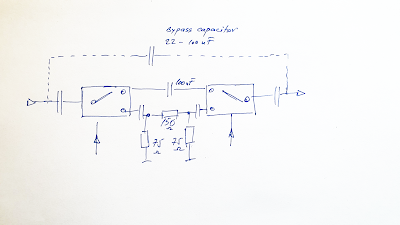 Bypass capacitor
22-100nF
100nF
150
Ω
75
Ω
75
Ω